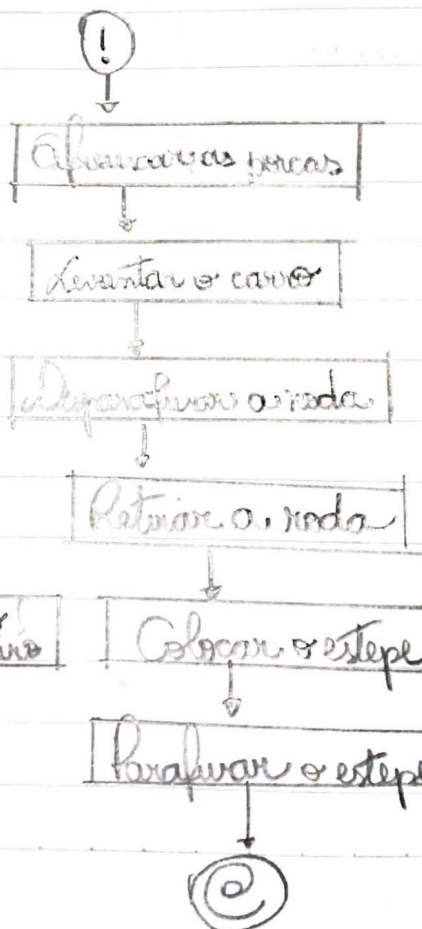 !
Afrouxar as porcas
Levantar o carro
Desparafusar a roda
Retirar a roda
Colocar o estepe
Parafusar o estepe